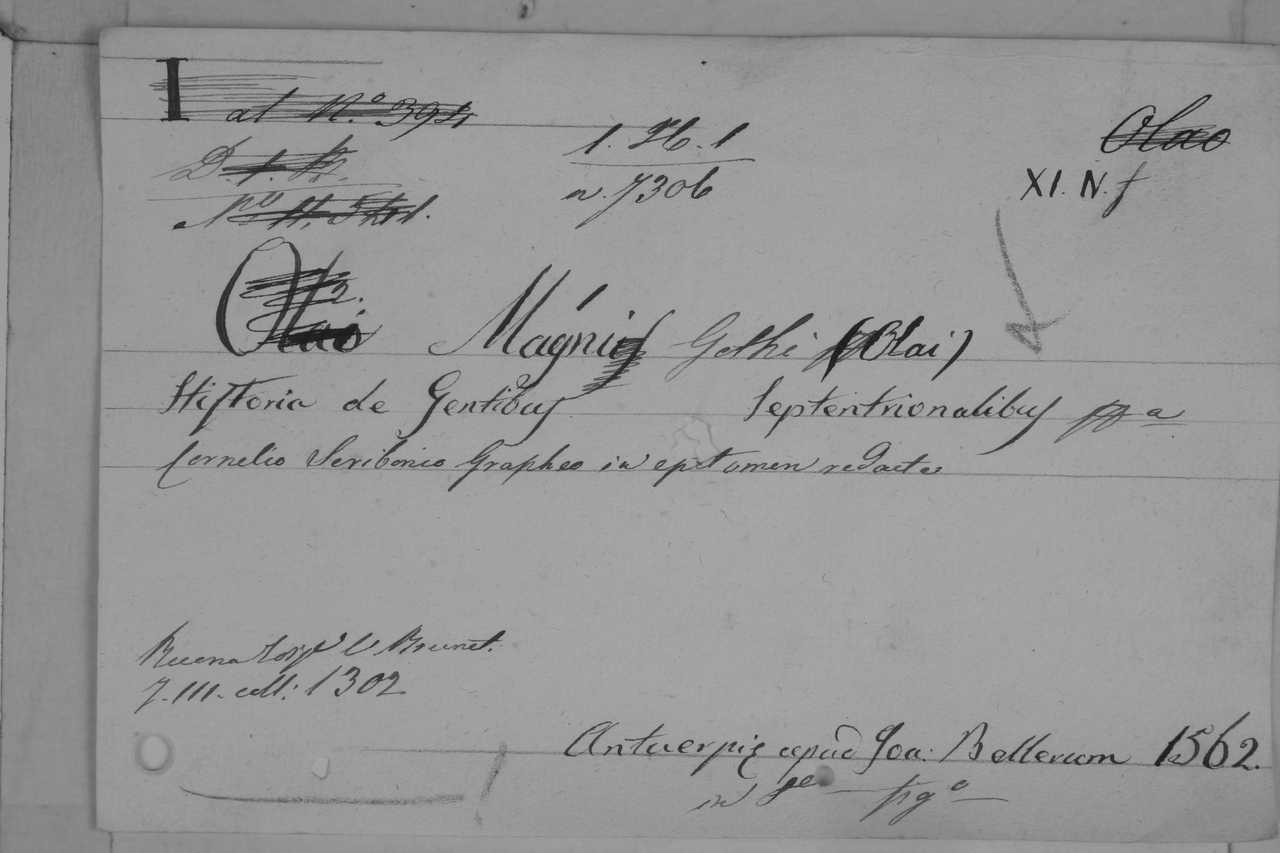 I al N.º 394
1. H. 1
Olao
n. 7306
XI. N. f
Olao Mágni Gothi (Olai)
Historia de Gentibus Septentrionalibus a
Cornelio Scribonio Grapheo in epitomen redacta
Buena V. Brunet.
T. III. coll: 1302
Antuerpię apud Joa: Bellerum 1562.
in 8º pgº